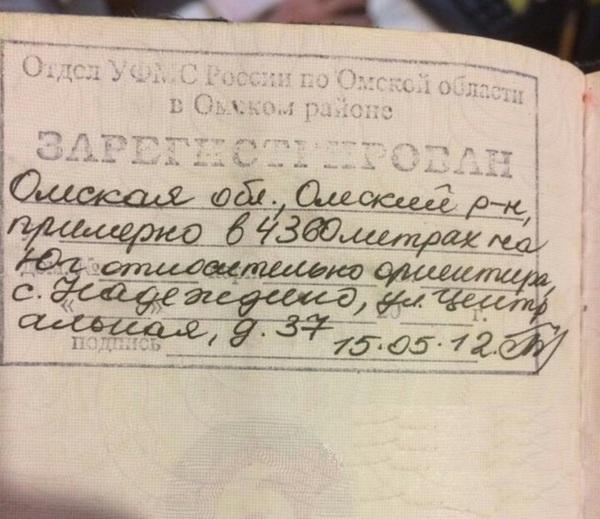 Отдел УФМС России по Омской области
в Омском районе
ЗАРЕГИСТРИРОВАН
Омская обл., Омский р-н,
примерно в 4360 метрах на
Юг относительно ориентира,
с. Надеждино, ул. Центр
альная, д. 37
подпись 15.05.12.